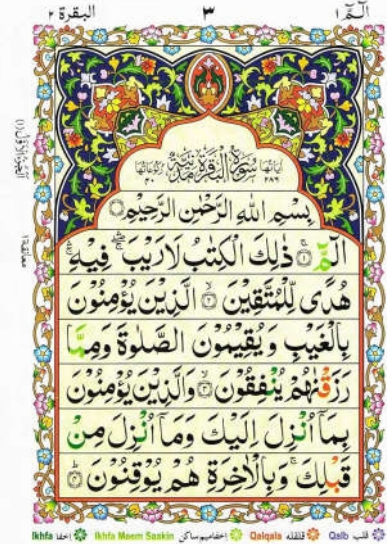 البقرة ٢ ٣ الٓمّٓ ١
اٰيَاتُهَا ٢٨٦ سُوْرَةُ الْبَقَرَةِ مَدَنِيَّةٌ رُكُوْعَاتُهَا ٤٠
بِسْمِ اللهِ الرَّحْمٰنِ الرَّحِيْمِ
الٓمّٓ ۚ﴿١﴾ ذٰلِكَ الْكِتٰبُ لَا رَيْبَ ۛۖ فِيْهِ ۛۚ
هُدًى لِّلْمُتَّقِيْنَ ۙ﴿٢﴾ الَّذِيْنَ يُؤْمِنُوْنَ
بِالْغَيْبِ وَيُقِيْمُوْنَ الصَّلٰوةَ وَمِمَّا
رَزَقْنٰهُمْ يُنْفِقُوْنَ ۙ﴿٣﴾ وَالَّذِيْنَ يُؤْمِنُوْنَ
بِمَآ اُنْزِلَ اِلَيْكَ وَمَآ اُنْزِلَ مِنْ
قَبْلِكَ ۚ وَبِالْاٰخِرَةِ هُمْ يُوْقِنُوْنَ ؕ﴿٤﴾
معانقة ١
Ikhfa اخفا Ikhfa Maem Saakin اخفا میم ساکن Qalqala قلقله Qalb قلب